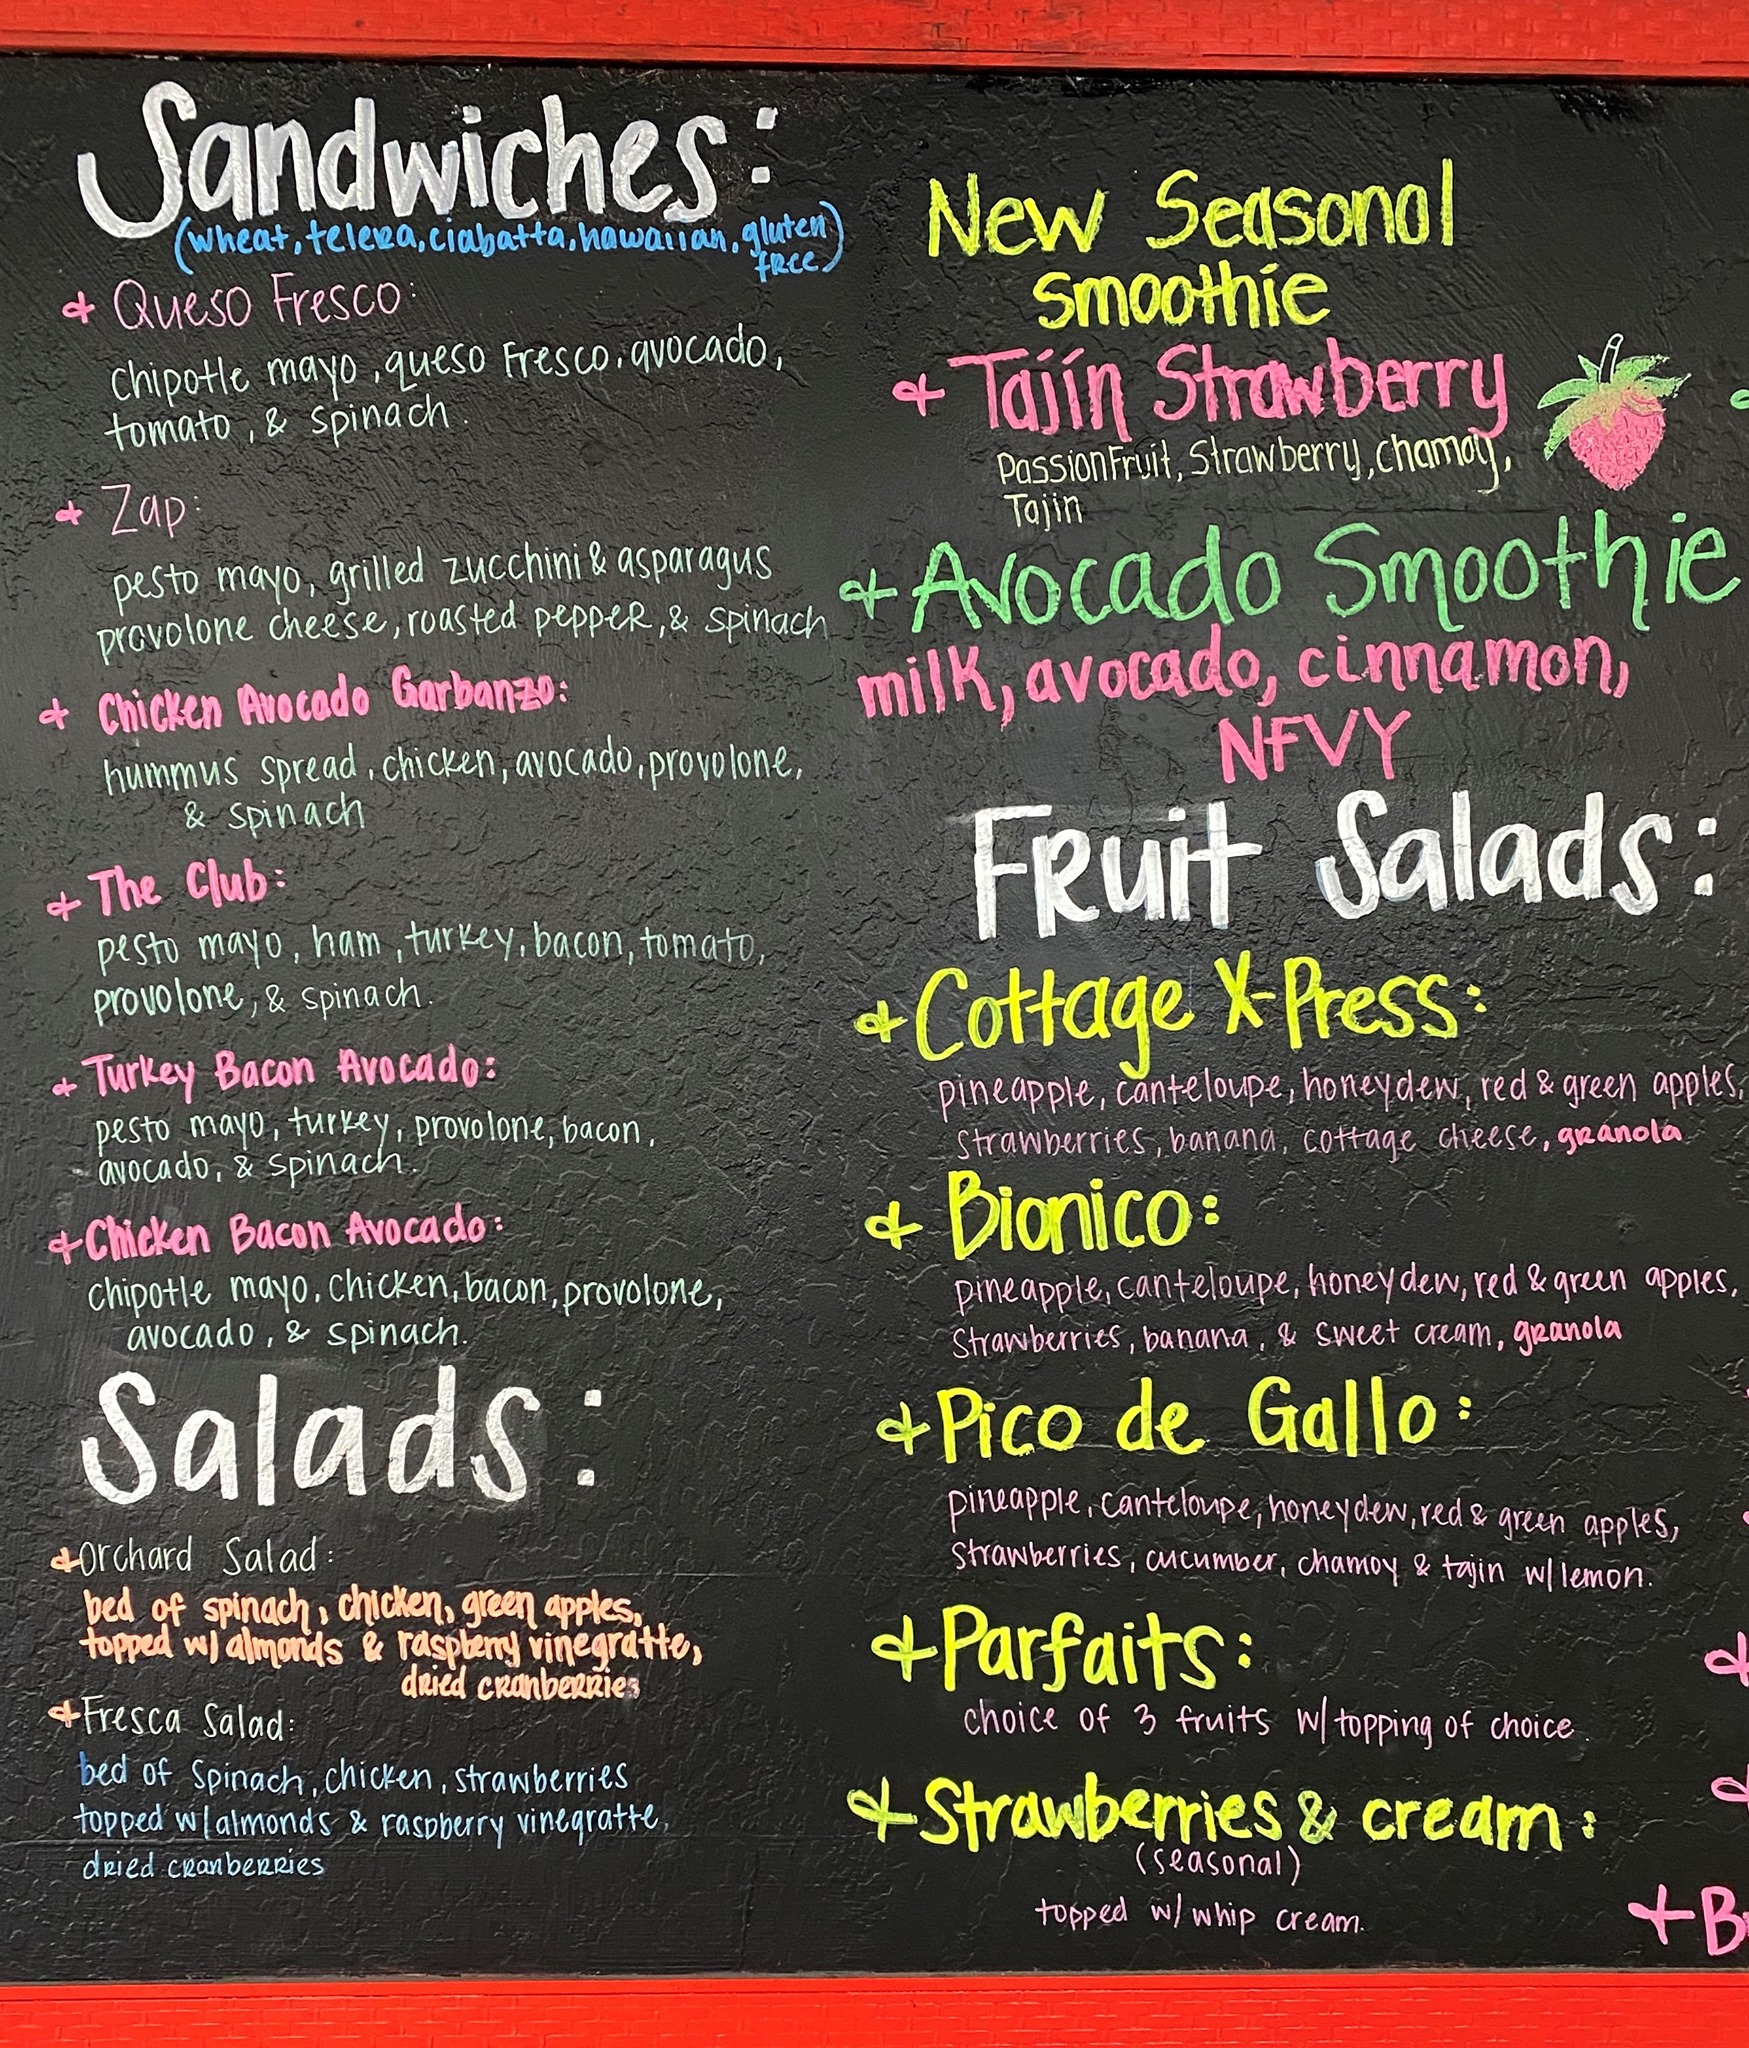 Sandwiches:
(wheat, telera, ciabatta, hawaiian, gluten
free)
+ Queso Fresco:
chipotle mayo, queso Fresco, avocado,
tomato, & spinach.
+ Zap:
pesto mayo, grilled zucchini & asparagus
provolone cheese, roasted pepper, & spinach
+ Chicken Avocado Garbanzo:
hummus spread, chicken, avocado, provolone,
& spinach
+ The Club:
pesto mayo, ham, turkey, bacon, tomato,
provolone, & spinach.
+ Turkey Bacon Avocado:
pesto mayo, turkey, provolone, bacon,
avocado, & spinach.
+ Chicken Bacon Avocado:
chipotle mayo, chicken, bacon, provolone,
avocado, & spinach.
Salads:
+ Orchard Salad:
bed of spinach, chicken, green apples,
topped w/ almonds & raspberry vinegratte,
dried cranberries
+ Fresca Salad:
bed of Spinach, chicken, strawberries
topped w/ almonds & raspberry vinegratte,
dried cranberries
New Seasonal
Smoothie
+ Tajín Strawberry
PassionFruit, Strawberry, chamoy,
Tajin
+ Avocado Smoothie
milk, avocado, cinnamon,
NFVY
Fruit Salads:
+ Cottage X-Press:
pineapple, canteloupe, honeydew, red & green apples,
strawberries, banana, cottage cheese, granola
+ Bionico:
pineapple, canteloupe, honeydew, red & green apples,
strawberries, banana, & sweet cream, granola
+ Pico de Gallo:
pineapple, canteloupe, honeydew, red & green apples,
strawberries, cucumber, chamoy & tajin w/ lemon.
+ Parfaits:
choice of 3 fruits w/ topping of choice.
+ Strawberries & cream:
(seasonal)
topped w/ whip cream.